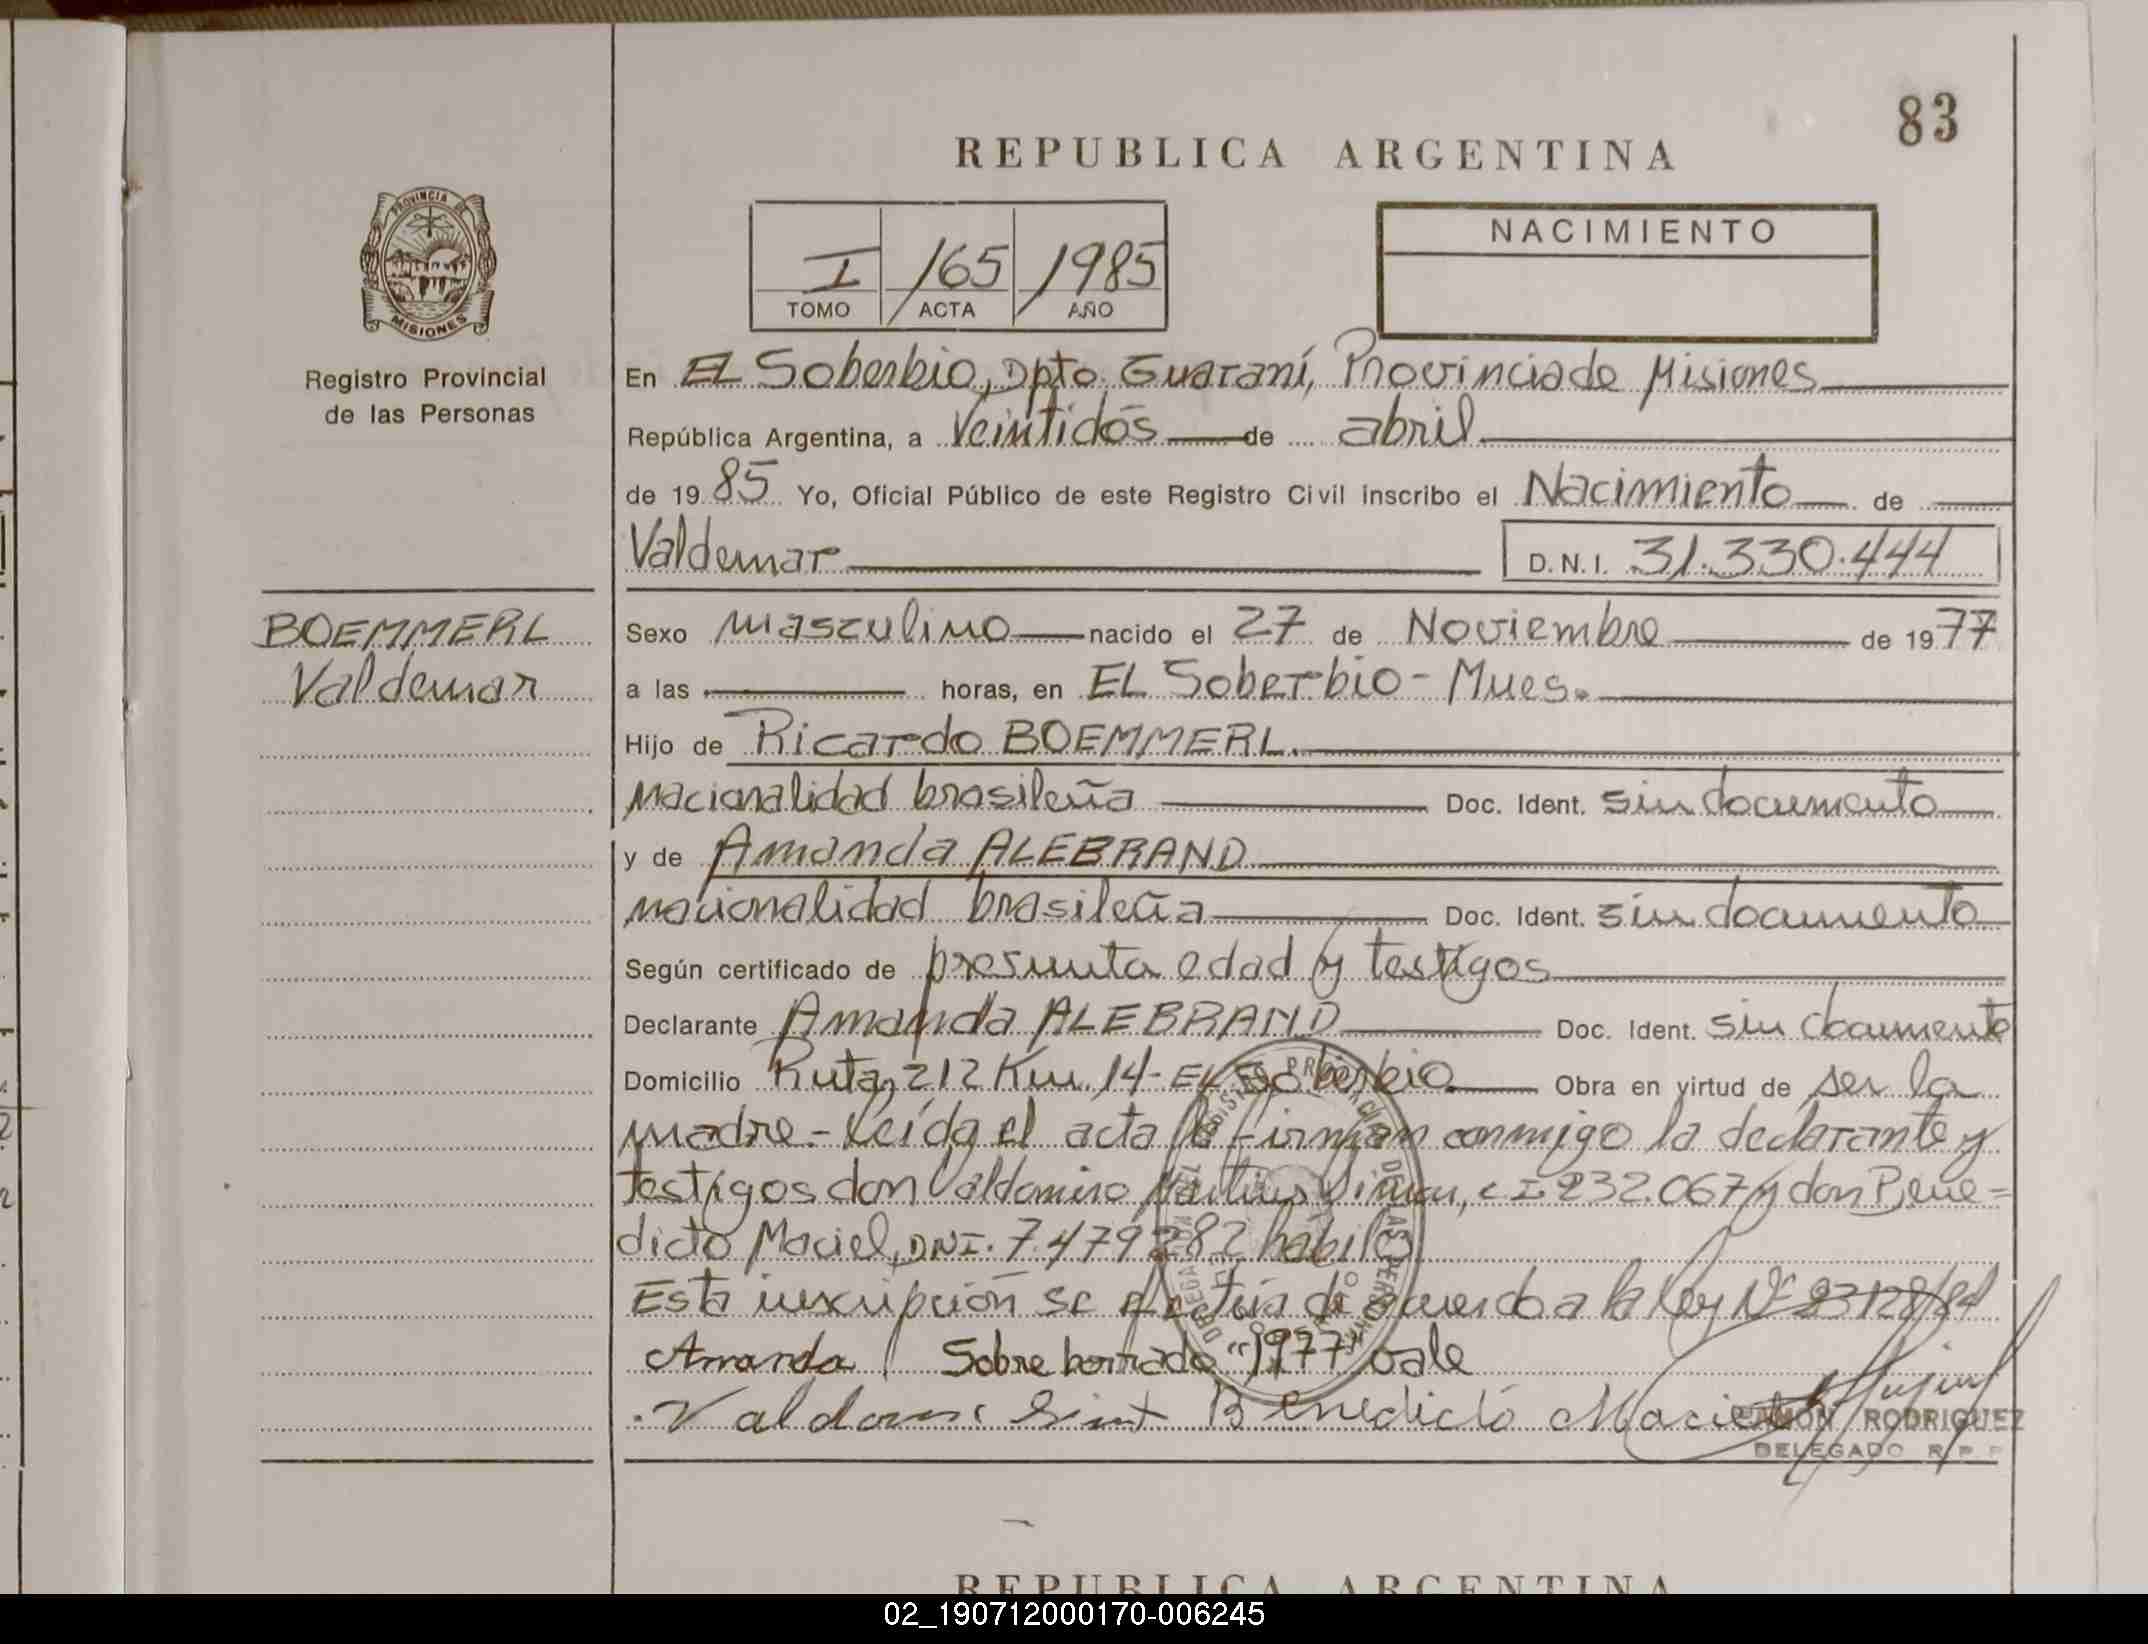 83
REPUBLICA ARGENTINA
PROVINCIA DE
MISIONES
Registro Provincial
de las Personas
I 165 1985
TOMO ACTA AÑO
NACIMIENTO
En EL Soberbio, Dpto. Guaraní, Provincia de Misiones
República Argentina, a Veintidós de abril
de 1985 Yo, Oficial Público de este Registro Civil inscribo el Nacimiento de
Valdemar D.N.I. 31.330.444
BOEMMERL
Valdemar
Sexo masculino nacido el 27 de Noviembre de 1977
a las horas, en EL Soberbio - Mnes.
Hijo de Ricardo BOEMMERL.
nacionalidad brasileña Doc. Ident. sin documento
y de Amanda ALEBRAND
nacionalidad brasileña Doc. Ident. sin documento
Según certificado de presunta edad y testigos
Declarante Amanda ALEBRAND Doc. Ident. sin documento
Domicilio Ruta 212 Km. 14 - EL Soberbio Obra en virtud de ser la
madre - Leída el acta la firman conmigo la declarante y
testigos don Valdomiro, C I 232.067 y don Bene=
dicto Maciel, DNI. 7.479.282 hábiles
Esta inscripción se efectúa de acuerdo a la ley Nº 23128/84
Amanda Sobre borrado "1977" vale
Benedicto Maciel
RAMON RODRIGUEZ
DELEGADO R. P. P.
REPUBLICA ARGENTINA
02_190712000170-006245